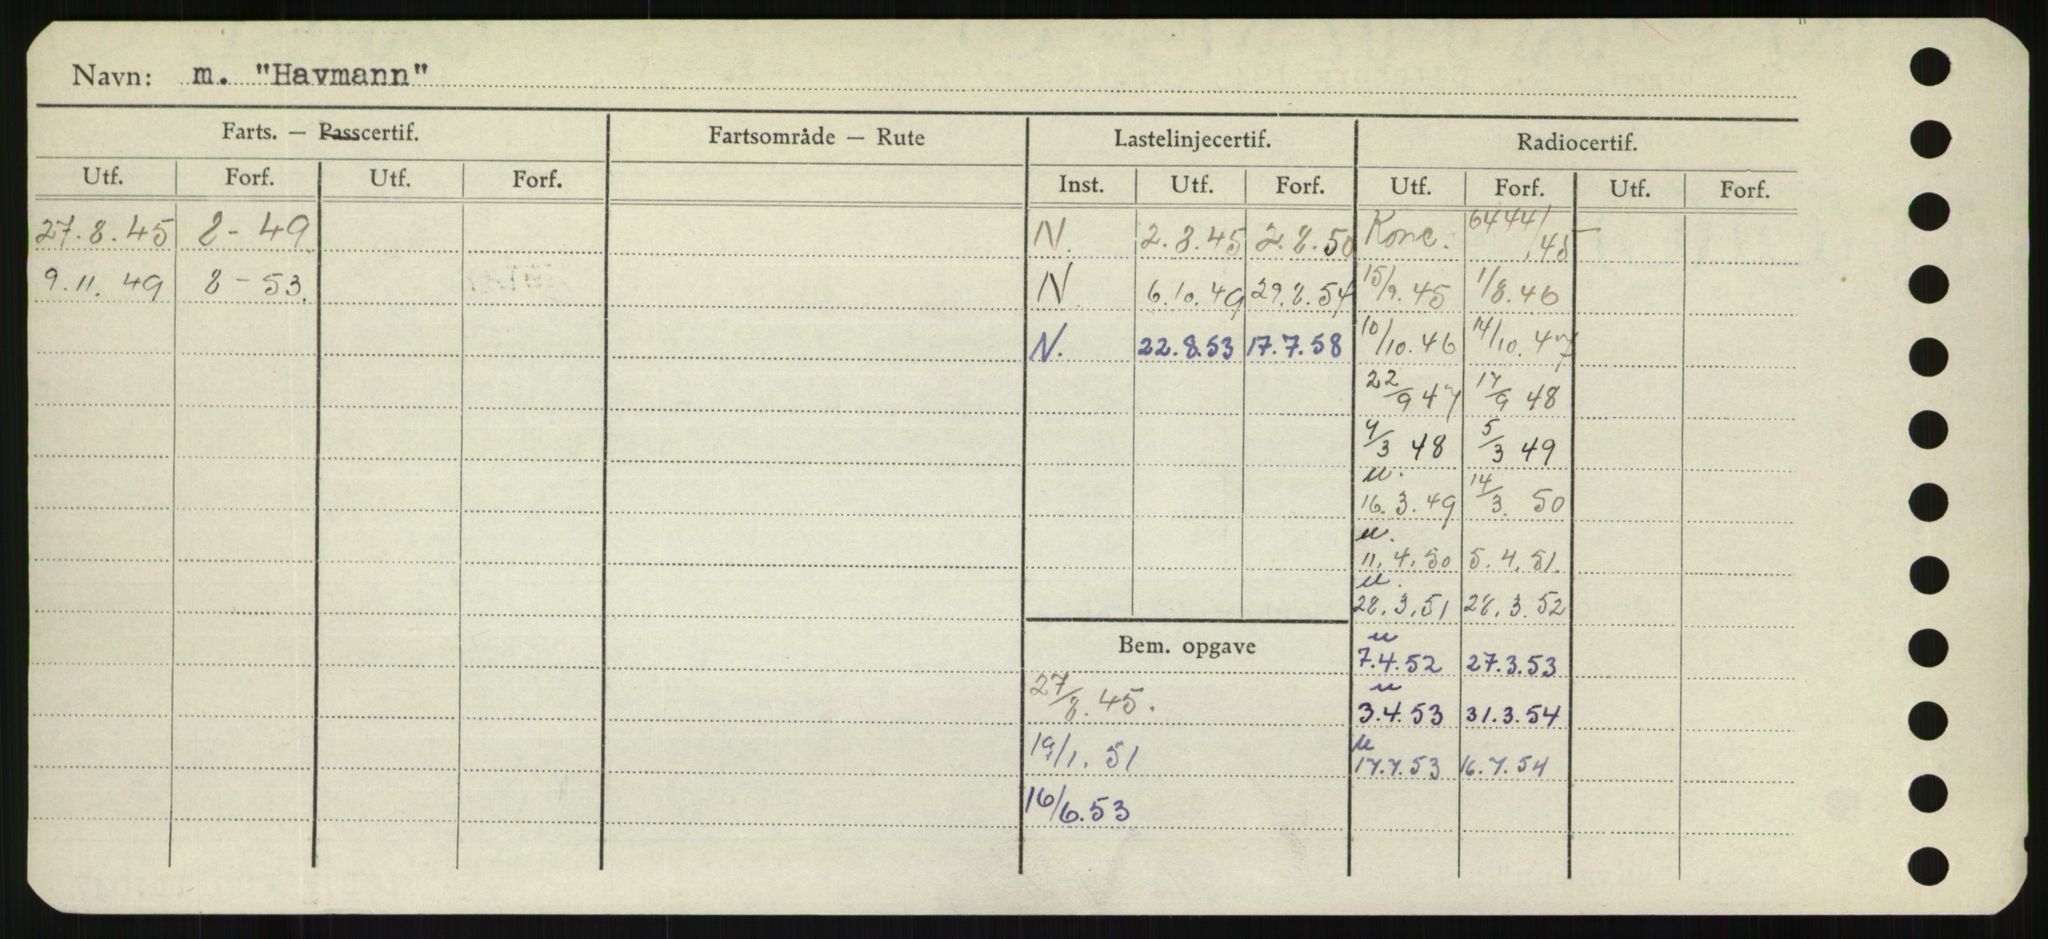 Navn: m. "Havmann"
Farts. — Passcertif. Fartsområde — Rute Lastelinjecertif. Radiocertif.
Utf. Forf. Utf. Forf. Inst. Utf. Forf. Utf. Forf. Utf. Forf.
27.8.45 8-49 N. 2.8.45 2.8.50 Konc. 6444/48
9.11.49 8-53. N 6.10.49 29.8.54 15/9.45 1/8.46
N. 22.8.53 17.7.58 10/10.46 14/10.47
22/9 47 17/9 48
4/3 48 5/3 49
u.
16.3.49 14/3. 50
u.
11.4.50 5.4.51.
u.
28.3.51 28.3.52
Bem. opgave
u
7.4.52 27.3.53
27/8.45.
u
3.4.53 31.3.54
19/1.51
u
17.7.53 16.7.54
16/6.53